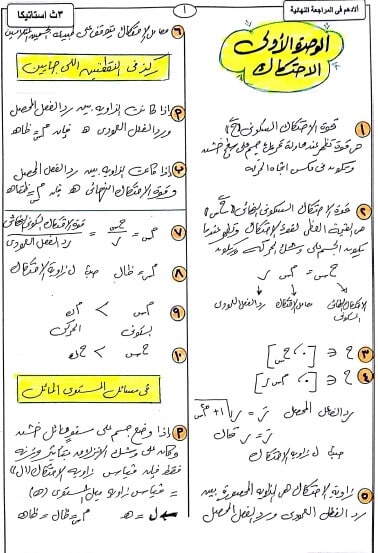 الأدهم في المراجعة النهائية
١
٣ث استاتيكا
الوحدة الأولى
الاحتكاك
١ قوة الاحتكاك السكوني (ح)
هى قوة تظهر عند محاولة تحريك جسم على سطح خشن
وتكون فى عكس اتجاه الحركة
٢ قوة الاحتكاك السكونى النهائى (حس)
هى القيمة العظمى لقوة الاحتكاك وتظهر عندما
يكون الجسم على وشك الحركة وتكون
حس = مس ر
الاحتكاك النهائى السكونى
معامل الاحتكاك
رد الفعل العمودى
٣ ح ∈ [٠، حس]
٤ ح ∈ [٠، مس ر]
رد الفعل المحصل
حيث ل زاوية الاحتكاك
٥ زاوية الاحتكاك هى الزاوية المحصورة بين
رد الفعل العمودى ورد الفعل المحصل
٦ معامل الاحتكاك يتوقف على طبيعة الجسمين المتلامسين
ركز فى النقطتين اللى جايين
٢ إذا كانت الزاوية بين رد الفعل المحصل
ورد الفعل العمودى هـ فإن مس = طاهـ
ب إذا كانت الزاوية بين رد الفعل المحصل
وقوة الاحتكاك النهائى هـ فإن مس = طتاهـ
٧ مس = حس / ر = قوة الاحتكاك السكونى النهائى / رد الفعل العمودى
٨ مس = طال حيث ل زاوية الاحتكاك
٩ مس > مك
سكونى الحركى
١٠ حس > حك
فى مسائل المستوى المائل
٢ إذا وضع جسم على مستوى مائل خشن
وكان على وشك الانزلاق بتأثير وزنه
فقط فإن قياس زاوية الاحتكاك (ل)
= قياس زاوية ميل المستوى (هـ)
ل = هـ مس = طال = طاهـ